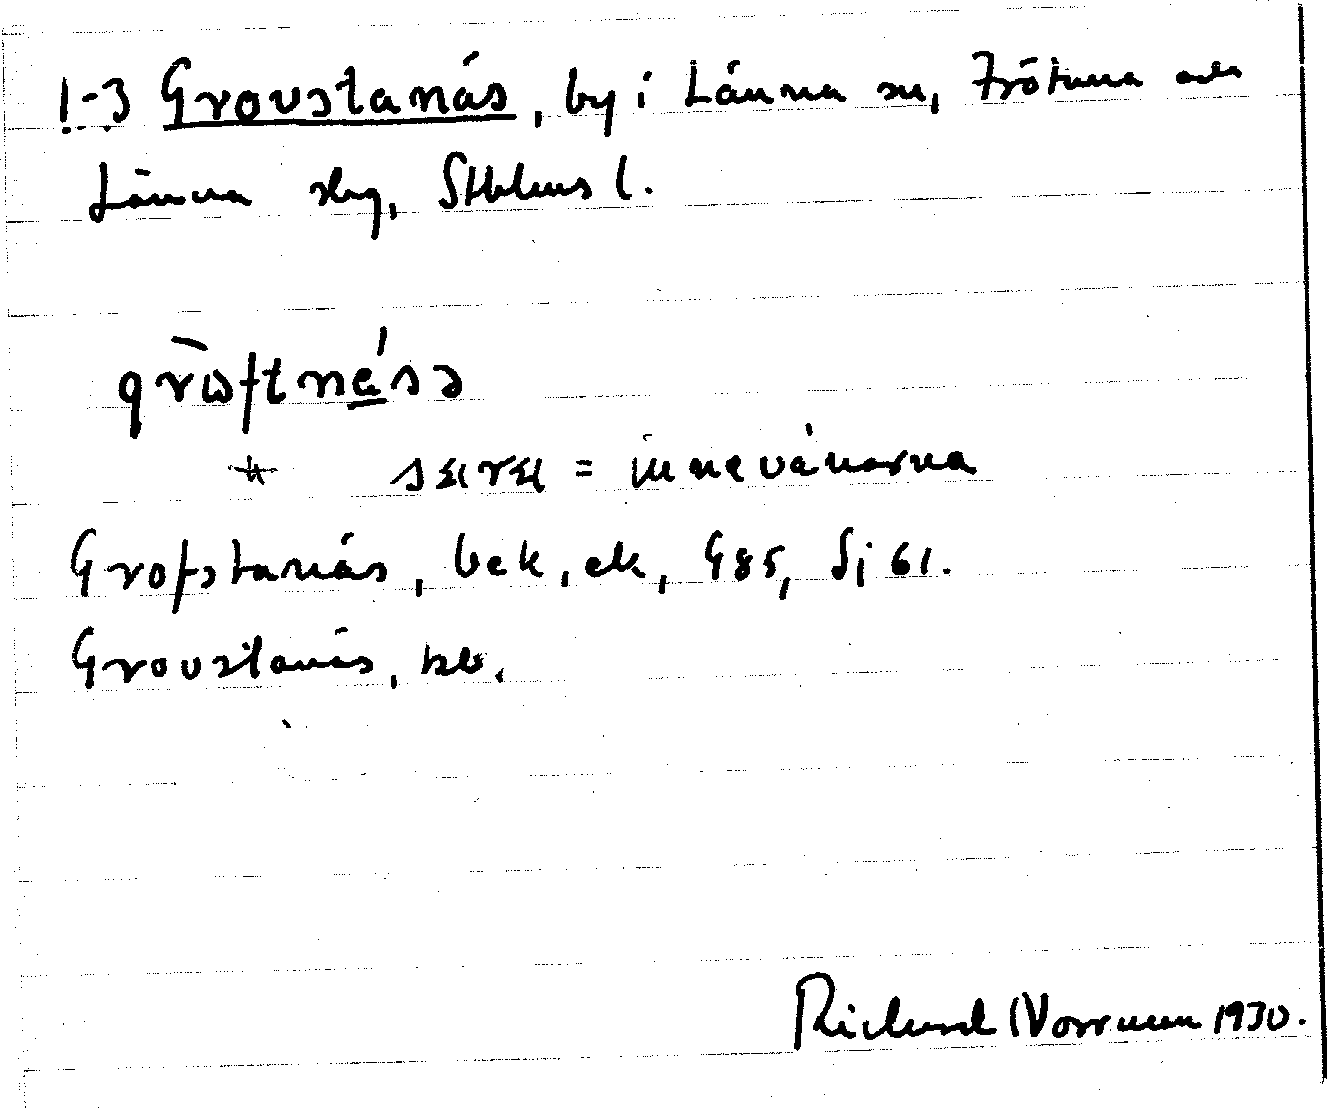 1-3 Grovstanäs, by i Länna sn, Frötuna och
Länna skg, Sthlms l.
gròftnäsə
sɐrɐ = innevånarna
Grofstanäs, bek, ek, G85, Sj 61.
Grovstanäs, kb.
Richard Norrman 1930.